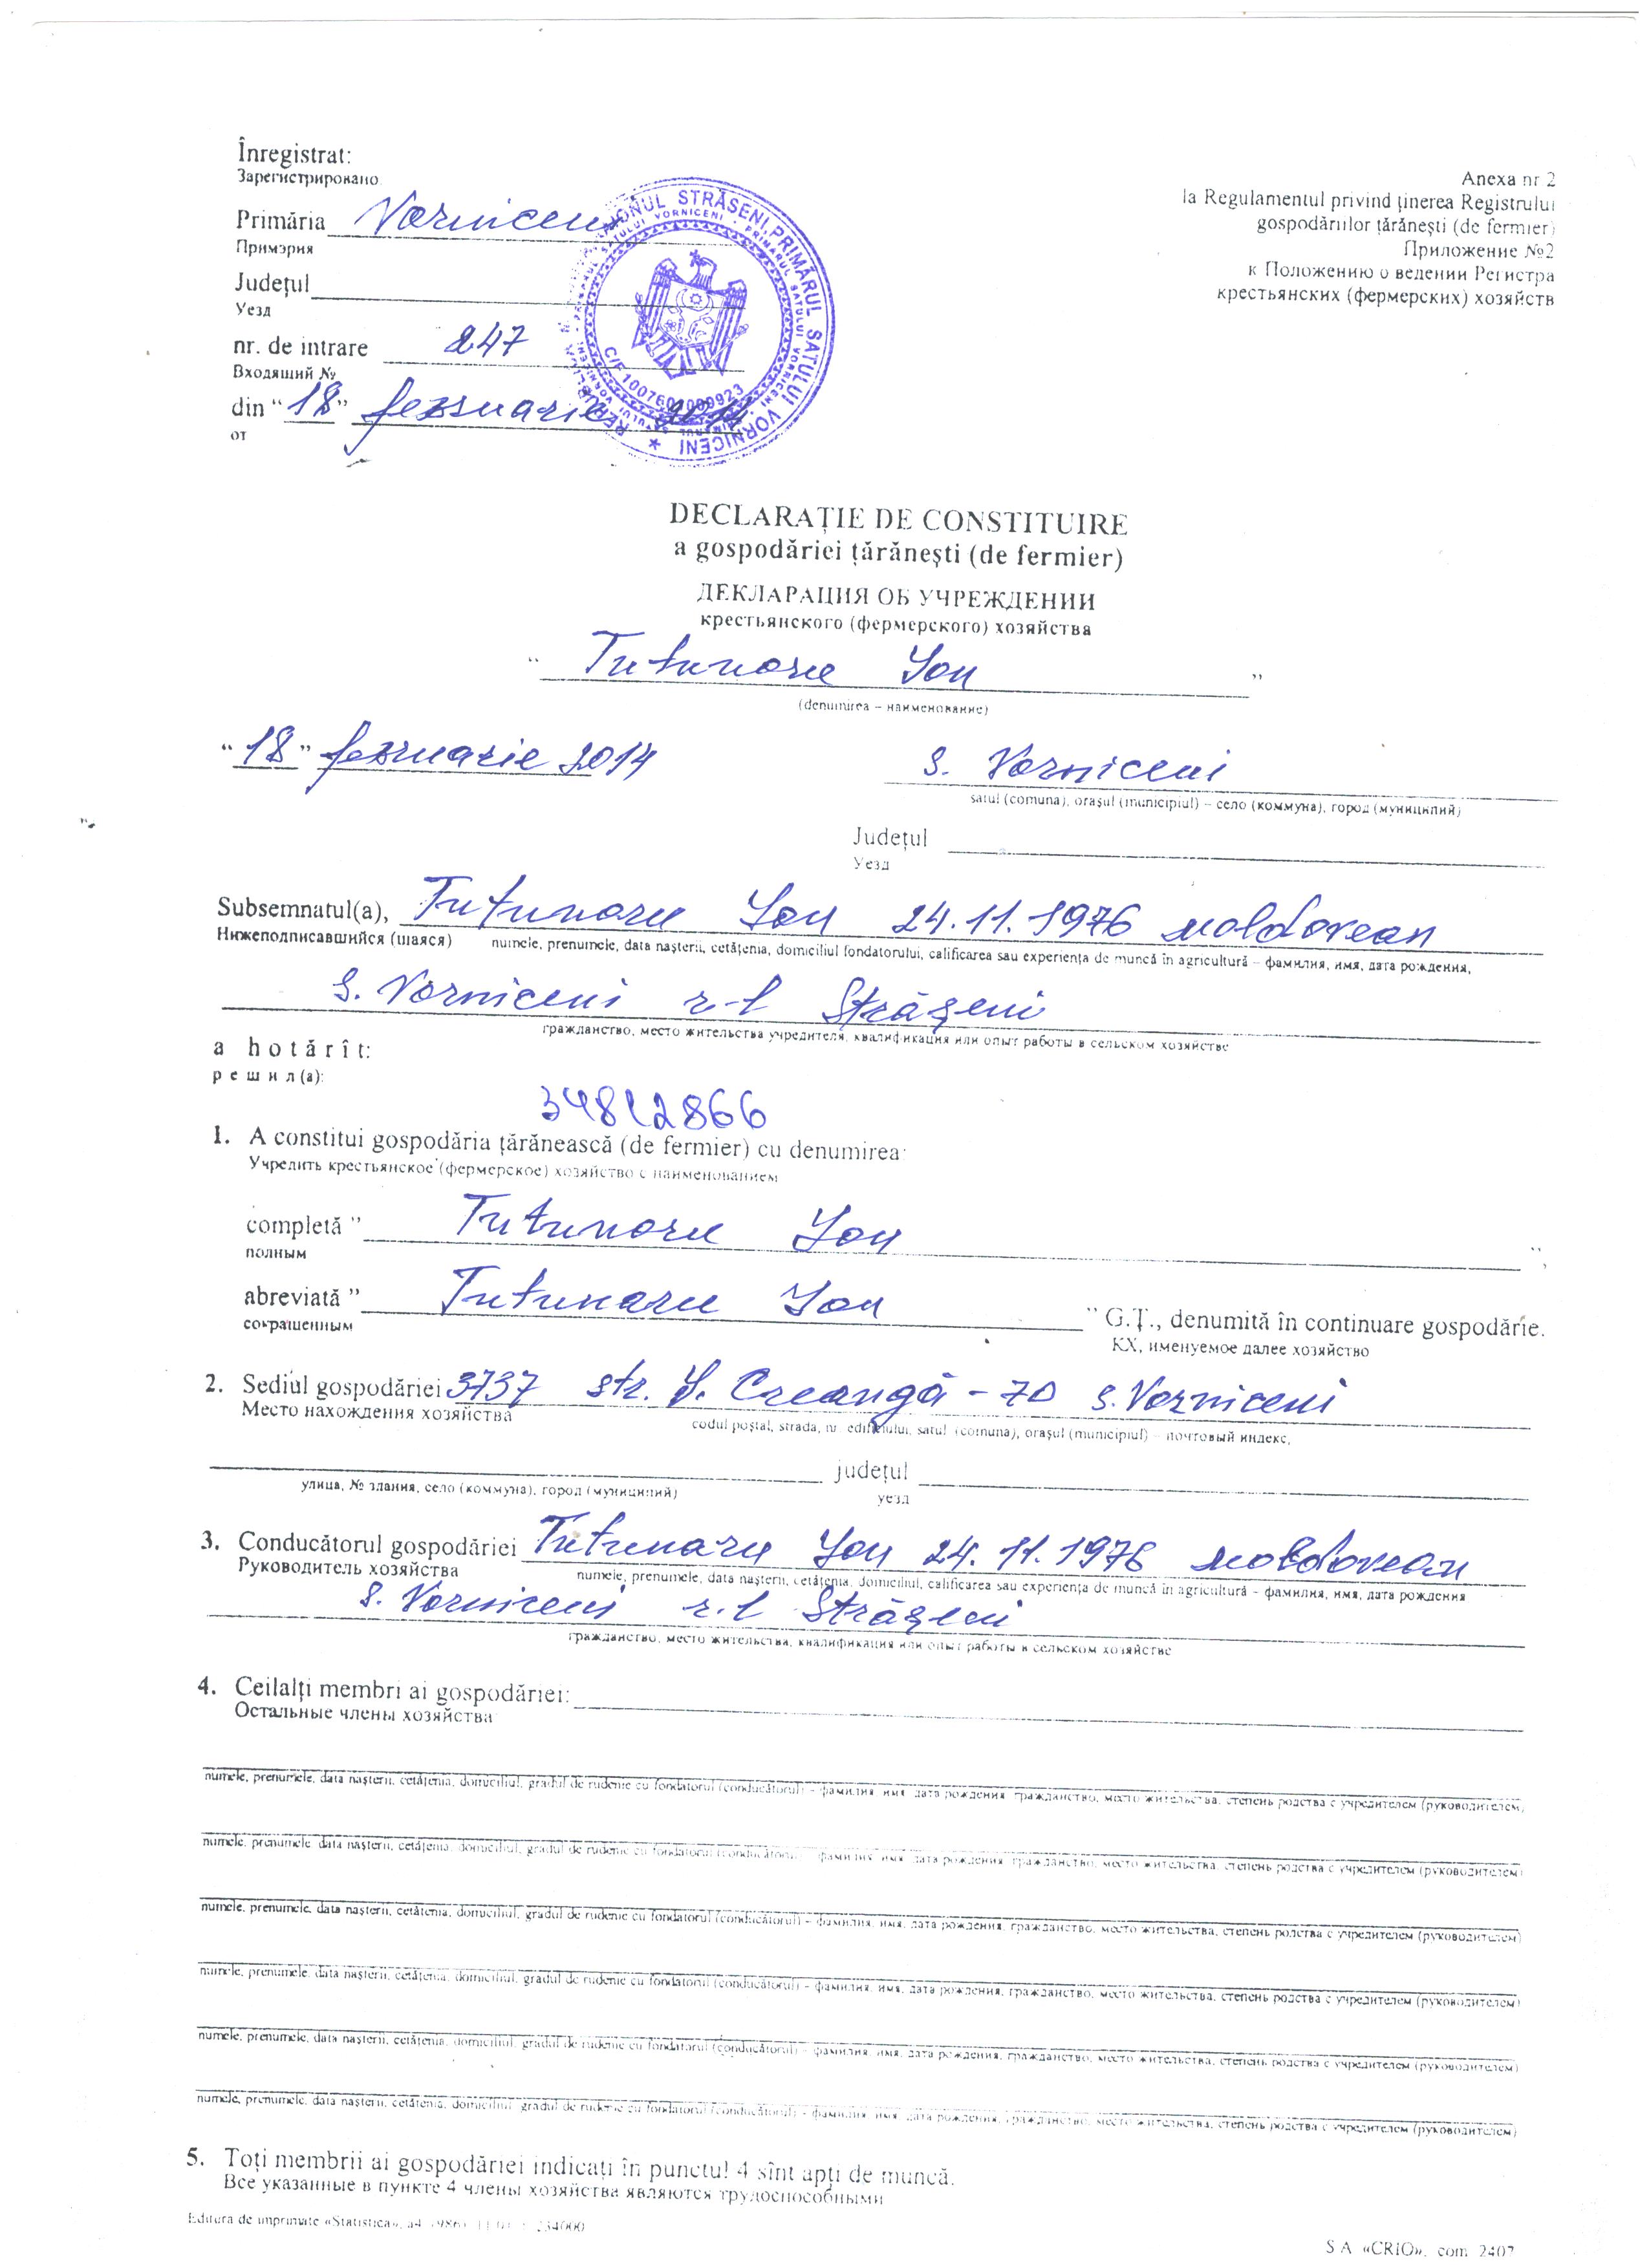 Înregistrat:
Зарегистрировано
Primăria Vorniceni
Примэрия
Județul
Уезд
nr. de intrare 247
Входящий №
din “18” februarie 2014
от
STRĂȘENI, PRIMĂRUL SATULUI VORNICENI
Anexa nr 2
la Regulamentul privind ținerea Registrului
gospodăriilor țărănești (de fermier)
Приложение №2
к Положению о ведении Регистра
крестьянских (фермерских) хозяйств
DECLARAȚIE DE CONSTITUIRE
a gospodăriei țărănești (de fermier)
ДЕКЛАРАЦИЯ ОБ УЧРЕЖДЕНИИ
крестьянского (фермерского) хозяйства
“ Tutunaru Ion ”
(denumirea – наименование)
“18” februarie 2014
s. Vorniceni
satul (comuna), orașul (municipiul) – село (коммуна), город (муниципий)
Județul
Уезд
Subsemnatul(a), Tutunaru Ion 24.11.1976 moldovean
Нижеподписавшийся (шаяся)
numele, prenumele, data nașterii, cetățenia, domiciliul fondatorului, calificarea sau experiența de muncă în agricultură – фамилия, имя, дата рождения,
s. Vorniceni r-l Strășeni
гражданство, место жительства учредителя, квалификация или опыт работы в сельском хозяйстве
a hotărît:
решил(а):
34812866
1. A constitui gospodăria țărănească (de fermier) cu denumirea:
Учредить крестьянское (фермерское) хозяйство с наименованием
completă ” Tutunaru Ion ”,
полным
abreviată ” Tutunaru Ion ” G.Ț., denumită în continuare gospodărie.
сокращенным
КХ, именуемое далее хозяйство
2. Sediul gospodăriei 3737 str. I. Creangă - 70 s. Vorniceni
Место нахождения хозяйства
codul poștal, strada, nr. edificiului, satul (comuna), orașul (municipiul) – почтовый индекс,
județul
улица, № здания, село (коммуна), город (муниципий)
уезд
3. Conducătorul gospodăriei Tutunaru Ion 24.11.1976 moldovean
Руководитель хозяйства
numele, prenumele, data nașterii, cetățenia, domiciliul, calificarea sau experiența de muncă în agricultură – фамилия, имя, дата рождения
s. Vorniceni r-l Strășeni
гражданство, место жительства, квалификация или опыт работы в сельском хозяйстве
4. Ceilalți membri ai gospodăriei:
Остальные члены хозяйства
numele, prenumele, data nașterii, cetățenia, domiciliul, gradul de rudenie cu fondatorul (conducătorul) – фамилия, имя, дата рождения, гражданство, место жительства, степень родства с учредителем (руководителем)
numele, prenumele, data nașterii, cetățenia, domiciliul, gradul de rudenie cu fondatorul (conducătorul) – фамилия, имя, дата рождения, гражданство, место жительства, степень родства с учредителем (руководителем)
numele, prenumele, data nașterii, cetățenia, domiciliul, gradul de rudenie cu fondatorul (conducătorul) – фамилия, имя, дата рождения, гражданство, место жительства, степень родства с учредителем (руководителем)
numele, prenumele, data nașterii, cetățenia, domiciliul, gradul de rudenie cu fondatorul (conducătorul) – фамилия, имя, дата рождения, гражданство, место жительства, степень родства с учредителем (руководителем)
numele, prenumele, data nașterii, cetățenia, domiciliul, gradul de rudenie cu fondatorul (conducătorul) – фамилия, имя, дата рождения, гражданство, место жительства, степень родства с учредителем (руководителем)
numele, prenumele, data nașterii, cetățenia, domiciliul, gradul de rudenie cu fondatorul (conducătorul) – фамилия, имя, дата рождения, гражданство, место жительства, степень родства с учредителем (руководителем)
5. Toți membrii ai gospodăriei indicați în punctul 4 sînt apți de muncă.
Все указанные в пункте 4 члены хозяйства являются трудоспособными
Editura de imprimate «Statistica»,
S.A. «CRIO», com. 2407